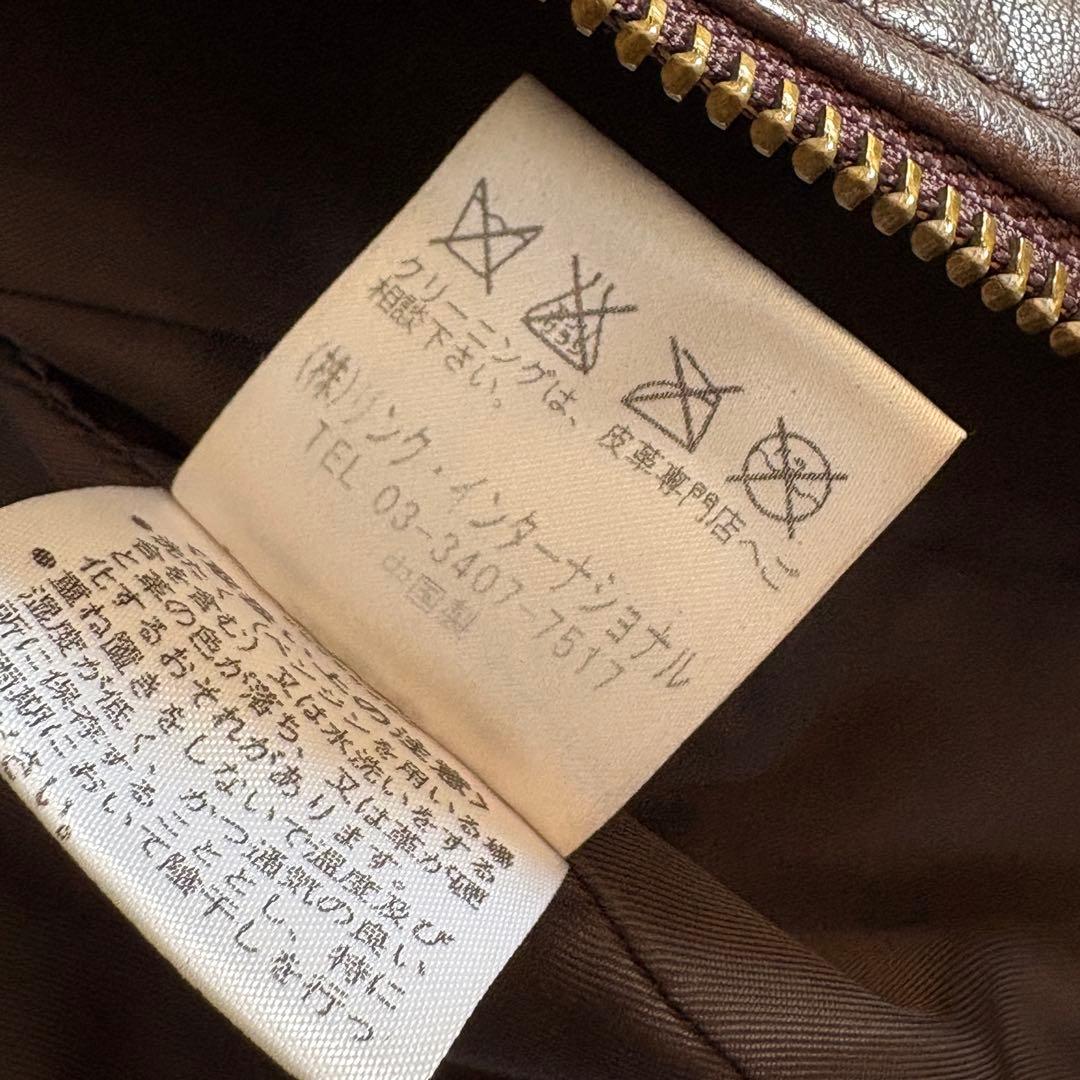 クリーニングは、皮革専門店へご
相談下さい。
(株)リンク・インターナショナル
TEL 03-3407-7517
中国製
洗たく
上の注意〉
(ベンジンを用いる場
合を含む)又は水洗いをする
と革の色が落ち、又は革が硬
化するおそれがあります。
●重ね置きをしないで温度及び
湿度が低く、かつ通気の良い
所に保存することとし、特に
雨期において陰干しを行っ
さい。